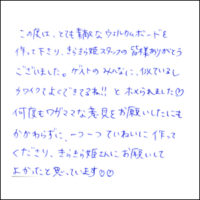 この度は、とても素敵なウェルカムボードを
作って下さり、きらきら姫スタッフの皆様ありがとう
ございました。ゲストのみんなに、似ているし
カワイクてよくできてるね!!とホメられました♡
何度もワガママな意見をお願いしたにも
かかわらずに、一つ一つていねいに作って
くださり、きらきら姫さんにお願いして
よかったと思っています♡♡